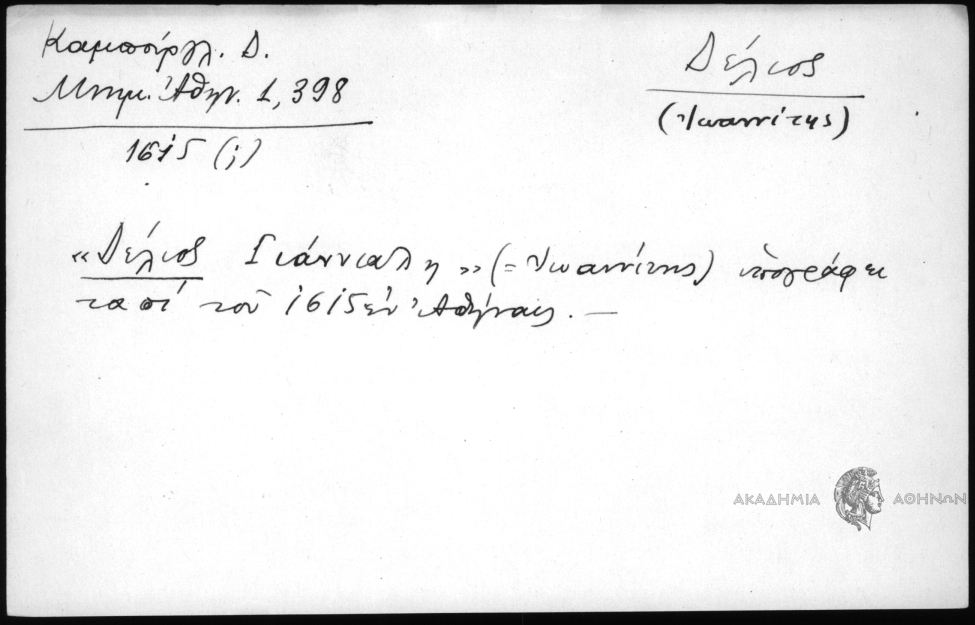 Καμπούρογλ. Δ.
Μνημ. Ἀθην. 1, 398
1615 (;)
Δέλιος
(Ἰωαννίτης)
«Δέλιος Γιάννιαλη» (= Ἰωαννίτης) ὑπογράφει
τοῦ 1615 ἐν Ἀθήναις. —
ΑΚΑΔΗΜΙΑ ΑΘΗΝΩΝ